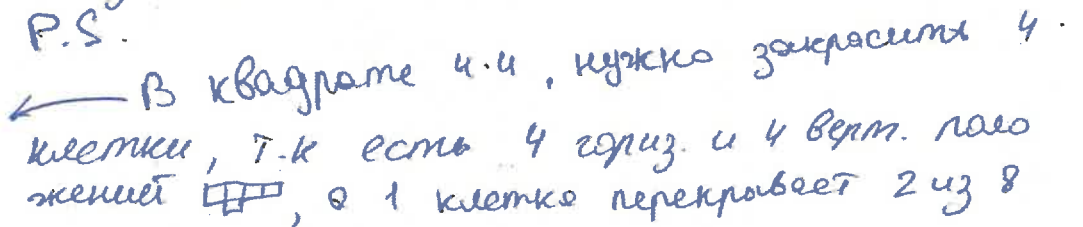 P.S.
В квадрате 4·4, нужно закрасить 4
клетки, т.к есть 4 гориз. и 4 верт. поло
жений , а 1 клетка перекрывает 2 из 8